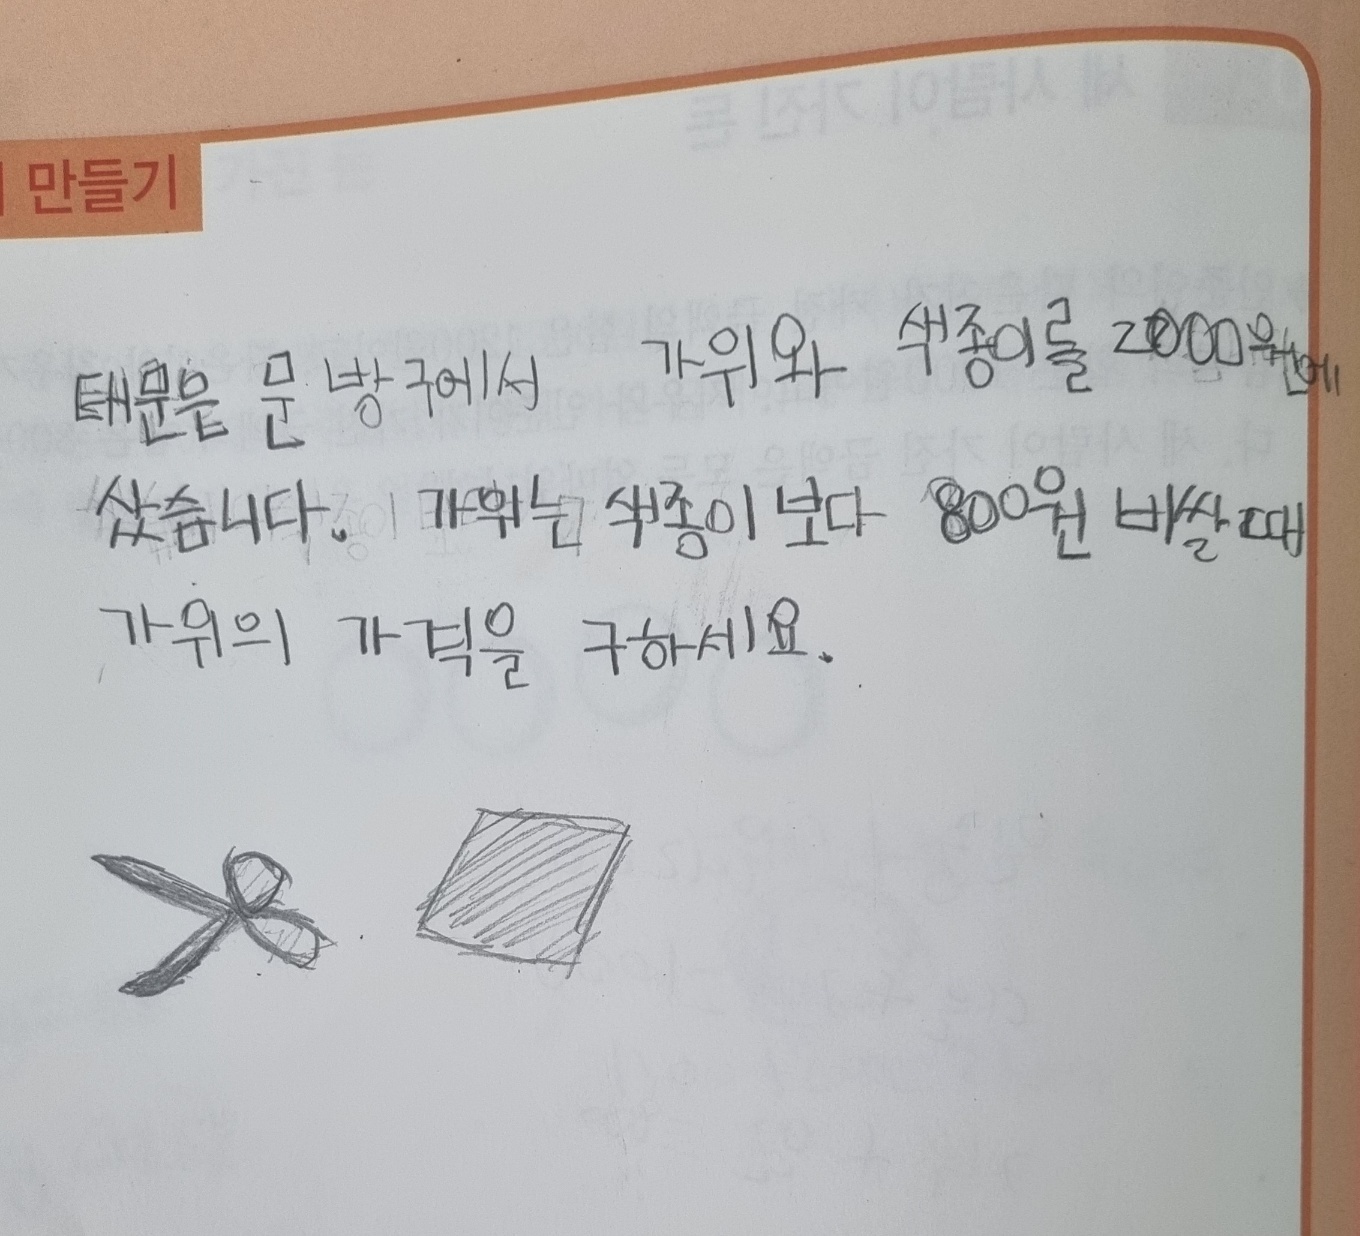 만들기
태문은 문방구에서 가위와 색종이를 2000원에
샀습니다. 가위는 색종이보다 800원 비쌀때
가위의 가격을 구하세요.